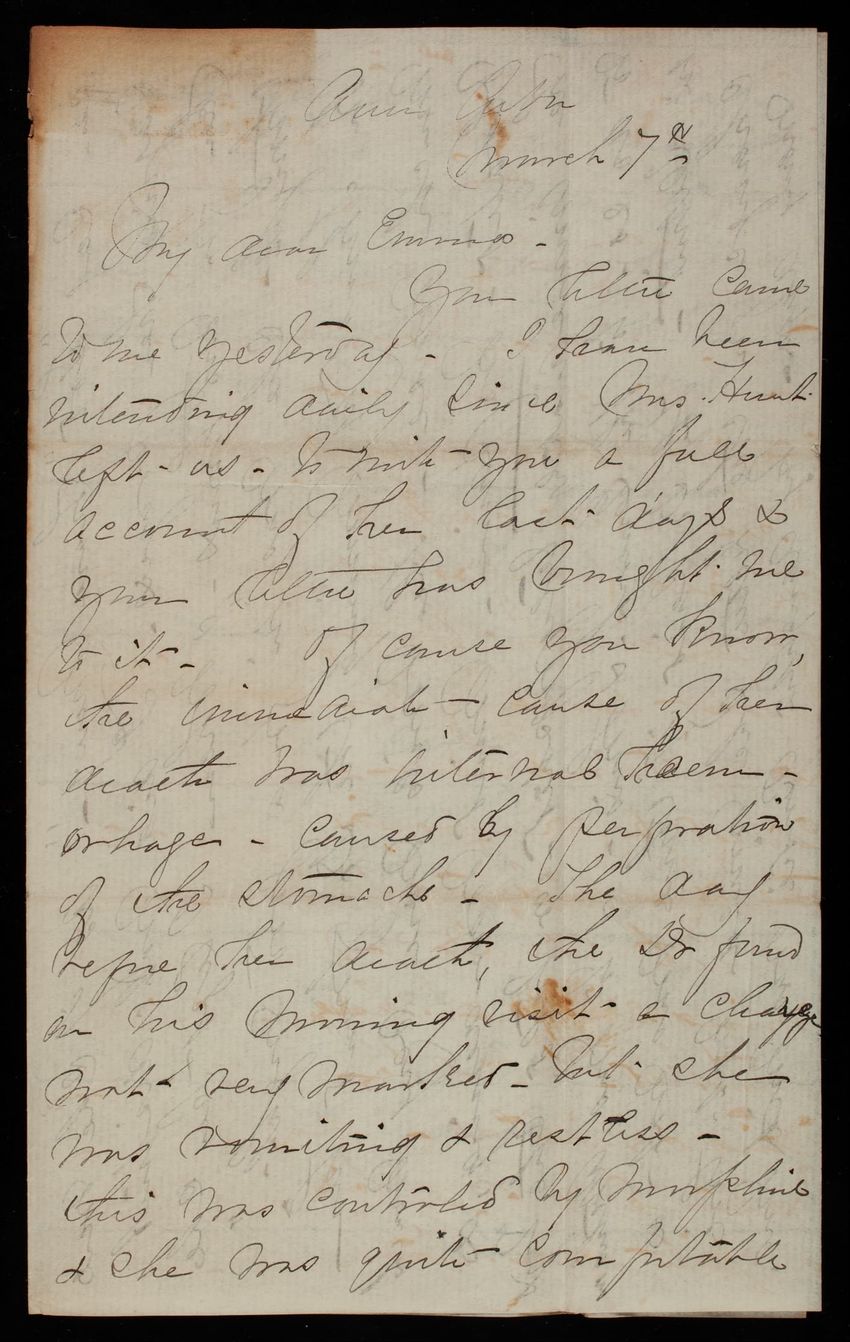 Ann Arbor
March 7th
My dear Emma -
Your letter came
to me yesterday - I have been
intending daily since Mrs. Hunt
left us - to write you a full
account of her last days &
your letter has brought me
to it - Of cause you know,
the immediate cause of her
death was internal haem-
orhage - caused by perforation
of the stomach - The day
before her death, the Dr found
on his morning visit a change
not very marked - but she
was vomiting & restless -
this was controled by morphine
& she was quite comfortable